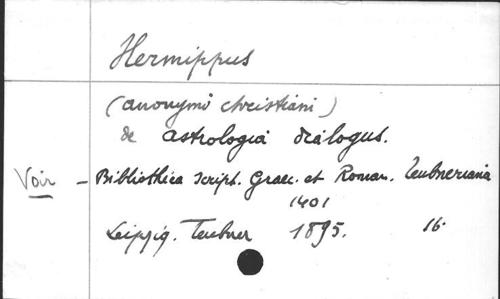 Hermippus
(anonymi christiani)
de astrologia dialogus.
Voir – Bibliotheca script. Graec. et Roman. Teubneriana
1401
Leipzig. Teubner 1895. 16.